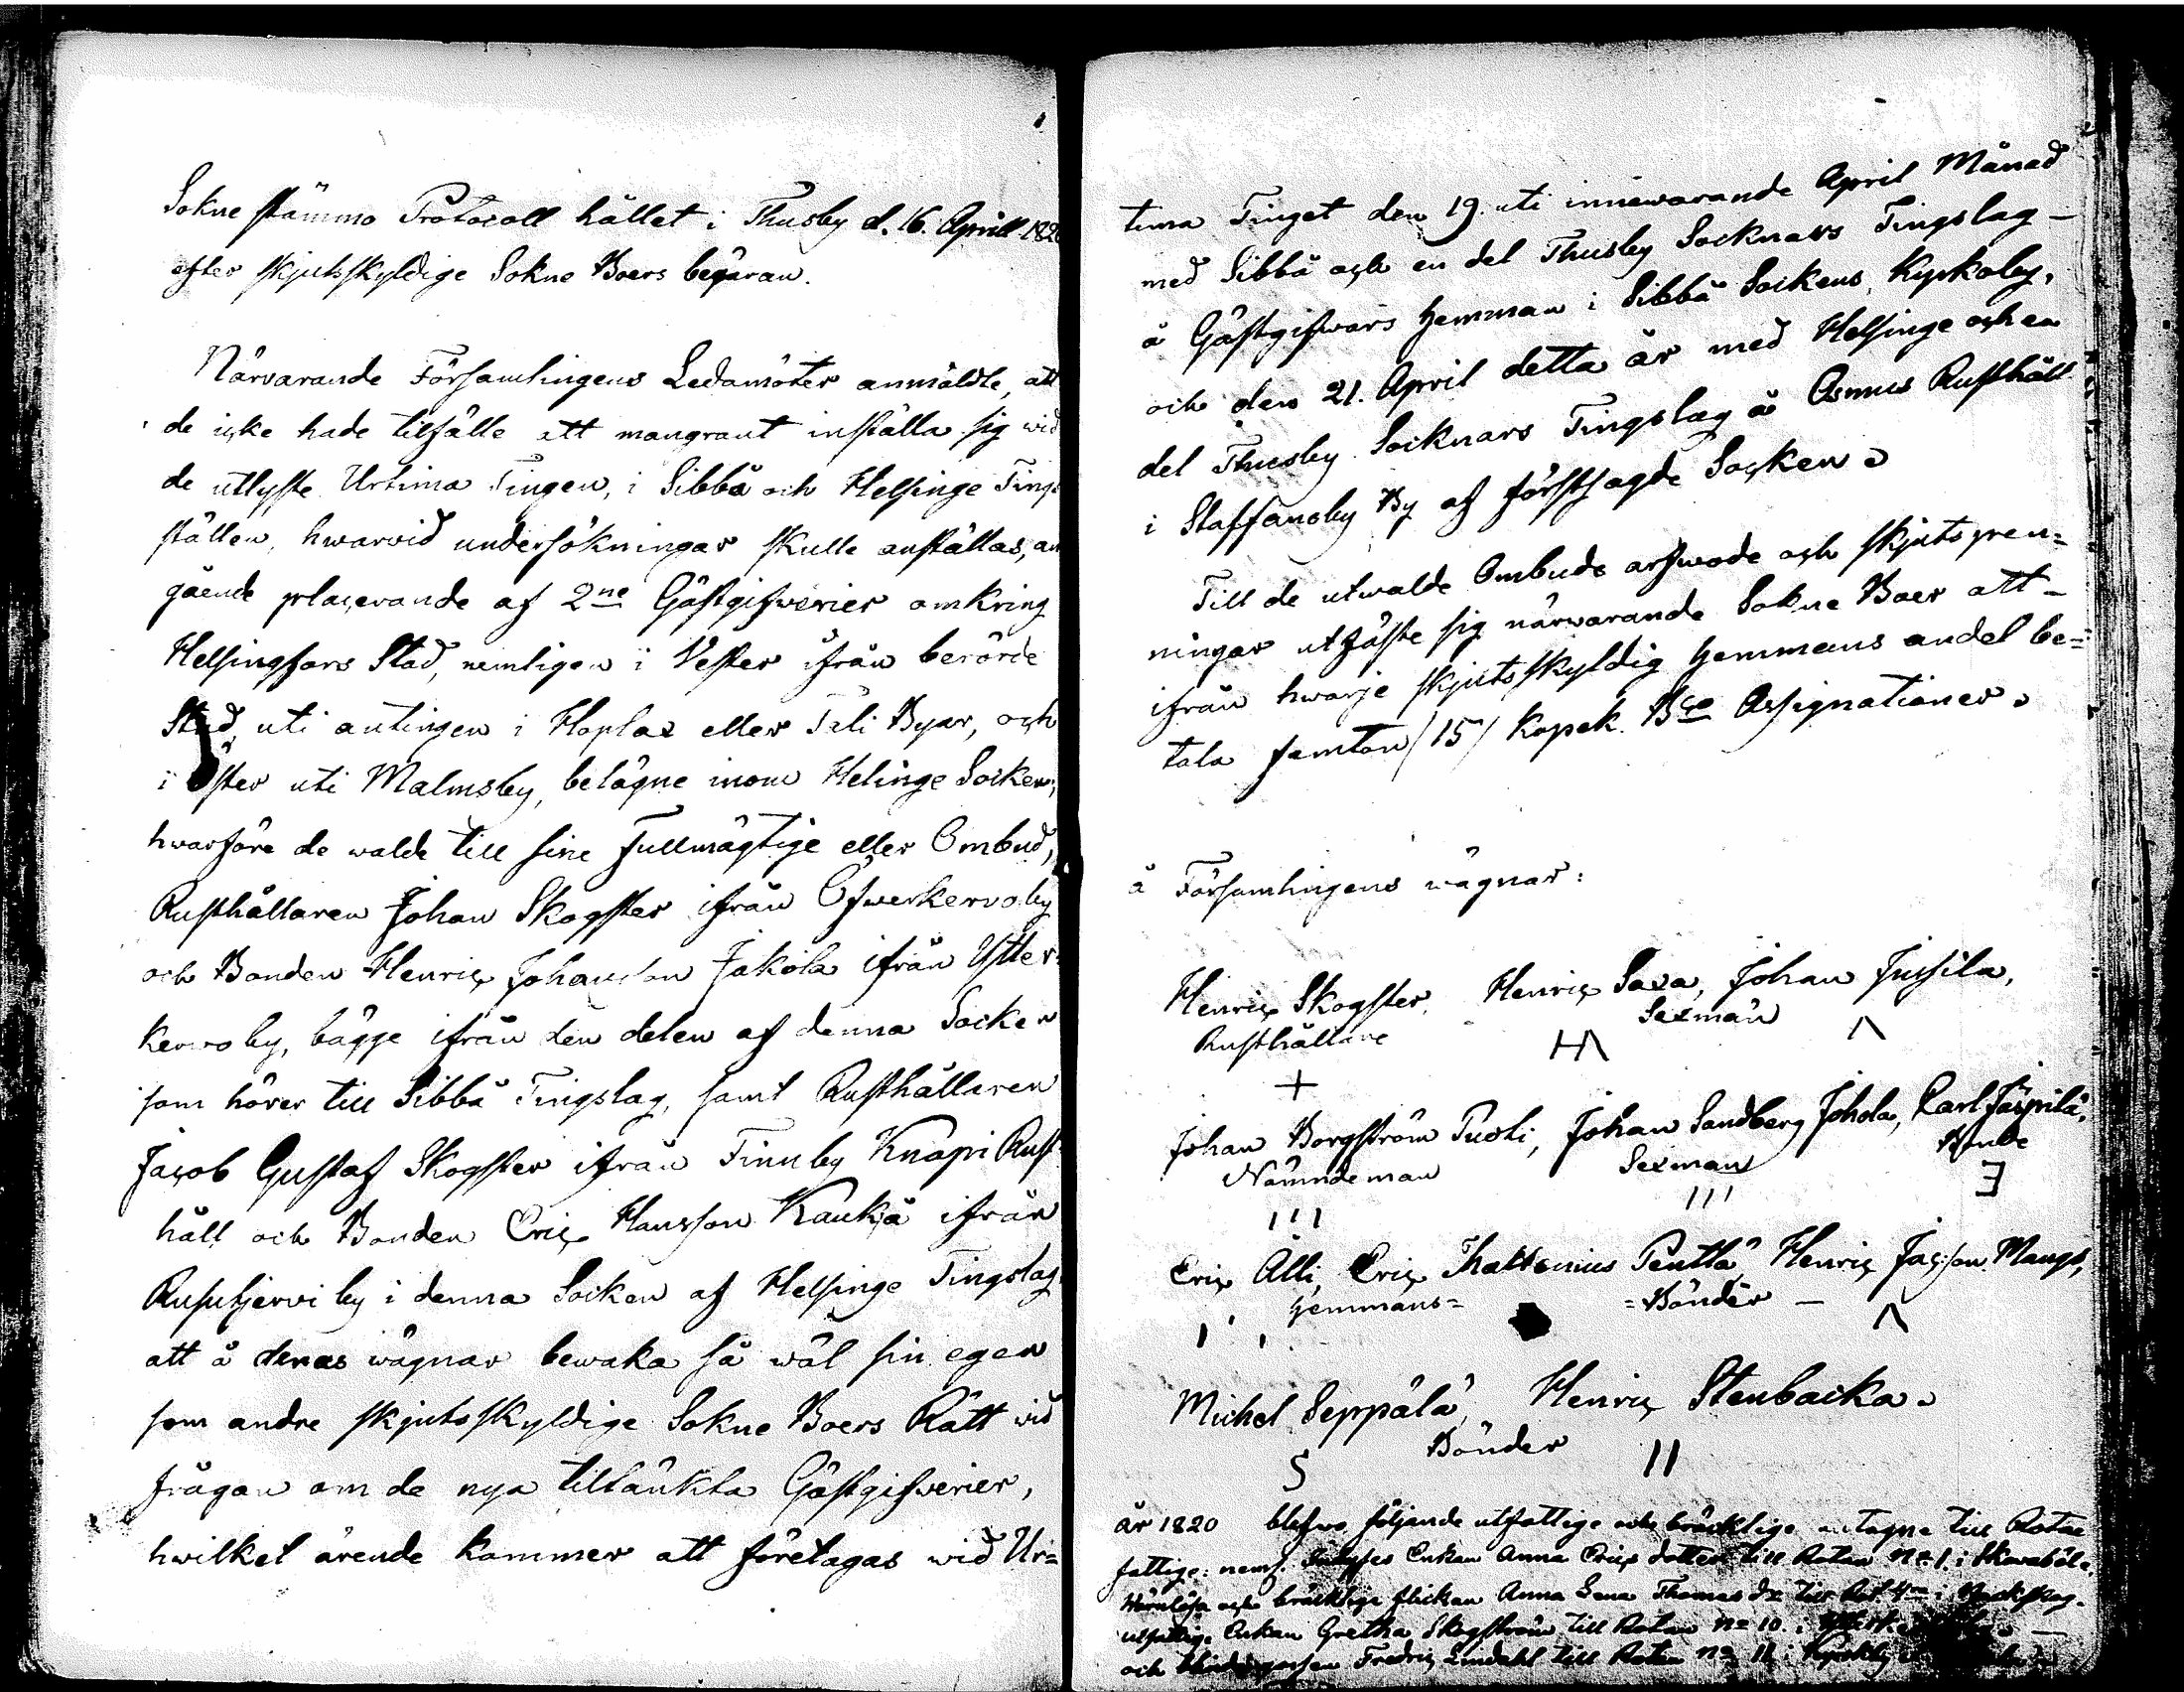 Sokne stämmo Protocoll hållet i Thusby d. 16. Aprill 1820
efter skjutsskyldige Sokne Boers begäran.
Närvarande Församlingens Ledamöter anmäldte, att
de icke hade tilfälle att mangrant inställa sig wid
de utlyste Urtima Tingen, i Sibbå och Helsinge Tings
ställen, hwarvid undersökningar skulle anställas, an
gående placerande af 2ne Gästgifverier omkring
Helsingfors Stad, nemligen i Vester ifrån berörde
Stad, uti antingen i Hoplax eller Tali Byar, och
i Öster uti Malmsby, belägne inom Helinge Socken;
hwarföre de walde till sine Fullmägtige eller Ombud,
Rusthållaren Johan Skogster ifrån Öfwerkervoby
och Bonden Henric Johansson Jakola ifrån Ytter
kervoby, bägge ifrån den delen af denna Socken
som hörer till Sibbå Tingslag, samt Rusthållaren
Jacob Gustaf Skogster ifrån Finnby Knapi Rust
håll och Bonden Eric Hansson Kaukja ifrån
Rusutjervi by i denna Socken af Helsinge Tingslag
att å deras wägnar bewaka så wäl sin egen
som andre skjutsskyldige Sokne Boers Rätt wid
frågan om de nya tilltänkta Gästgifverier,
hwilket ärende kommer att företagas wid Ur=
tima Tinget den 19. uti innewarande April Månad
med Sibbå och en del Thusby Socknars Tingslag –
å Gästgifwars Hemman i Sibbå Sockens Kyrkoby,
och den 21. April detta år med Helsinge och en
del Thusby Socknars Tingslag å Åsmus Rusthåll
i Staffansby By af förstsagde Socken.
Till de utwalde Ombuds arfwode och skjutspen=
ningar utfäste sig närwarande Sokne Boer att –
ifrån hwarje skjutsskyldig Hemmans andel be=
tala femton /15/ Kopek. Bco Assignationer.
å Församlingens wägnar:
Henric Skogster, Henric Saxa, Johan Jussila,
Rusthållare Sexman
Johan Borgström Tuoli, Johan Sandberg Johola, Karl Jäspilä,
Nämndeman Sexman Bonde
Eric Alli, Eric Thattenius Penttä, Henric Jacsson Maugs,
Hemmans= =Bönder –
Michel Seppälä, Henric Stenbacka.
Bönder
år 1820 blefwo följande utfattige och bräcklige antagne till Rotae
fattige: neml. Enkan Anna Erics dotter till Rotan No 1. i Skavaböle.
Wärnlösa och bräcklige flickan Anna Lena Thomas dr till Rot. 4 i
utfattige Enkan Gretha Skogström till Rotan No 10. i
och Fredric Lindahl till Rotan No 11 i